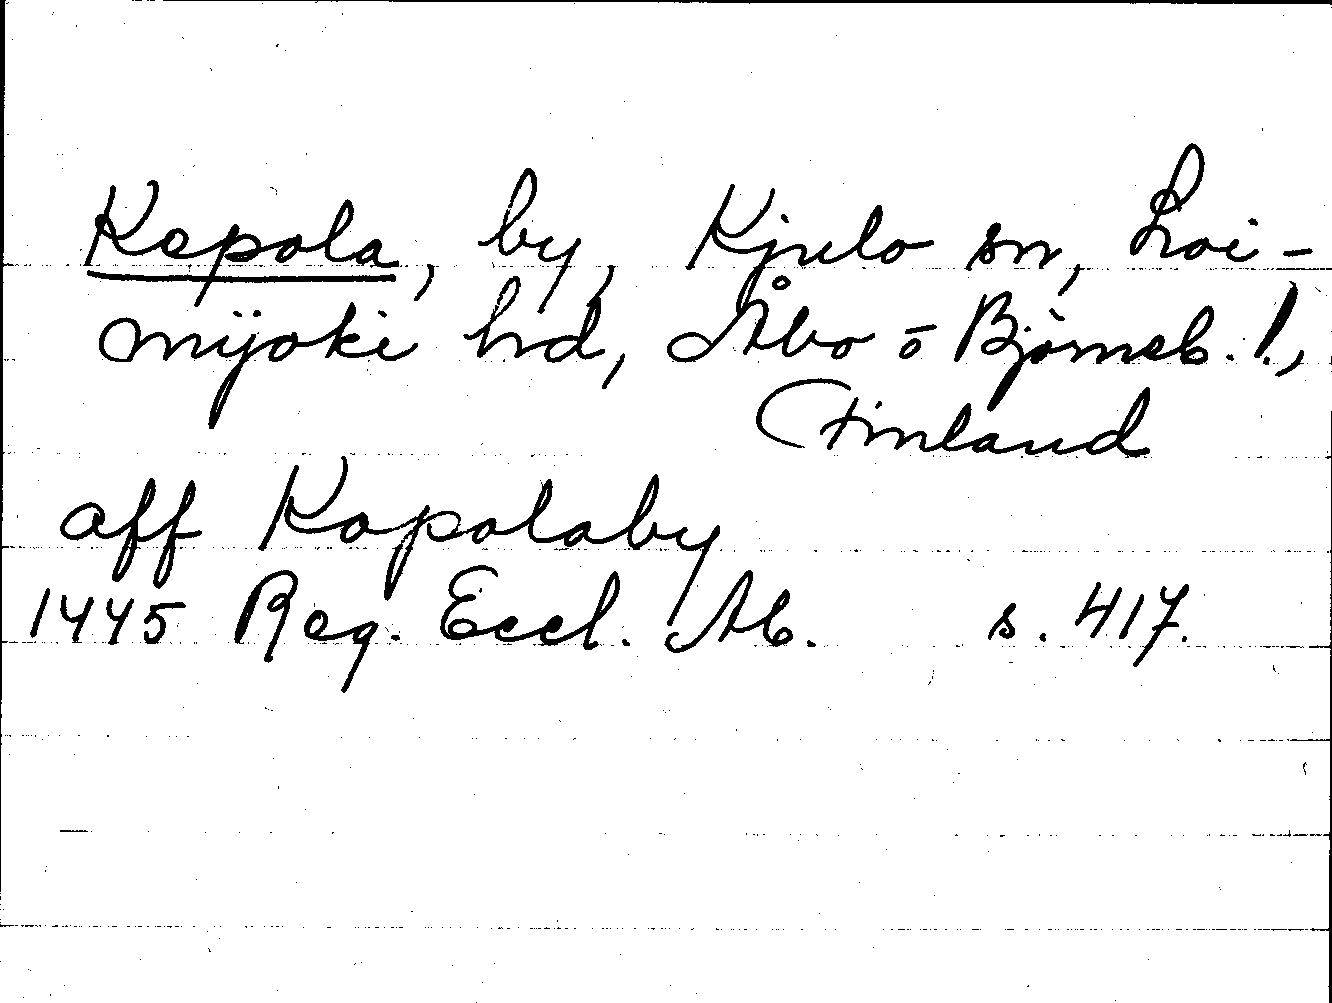 Kepola, by, Kjulo sn, Loi-
mijoki hd, Åbo o Björneb. l.,
Finland
aff Kopolaby
1445 Reg. Eccl. Ab. s. 417.